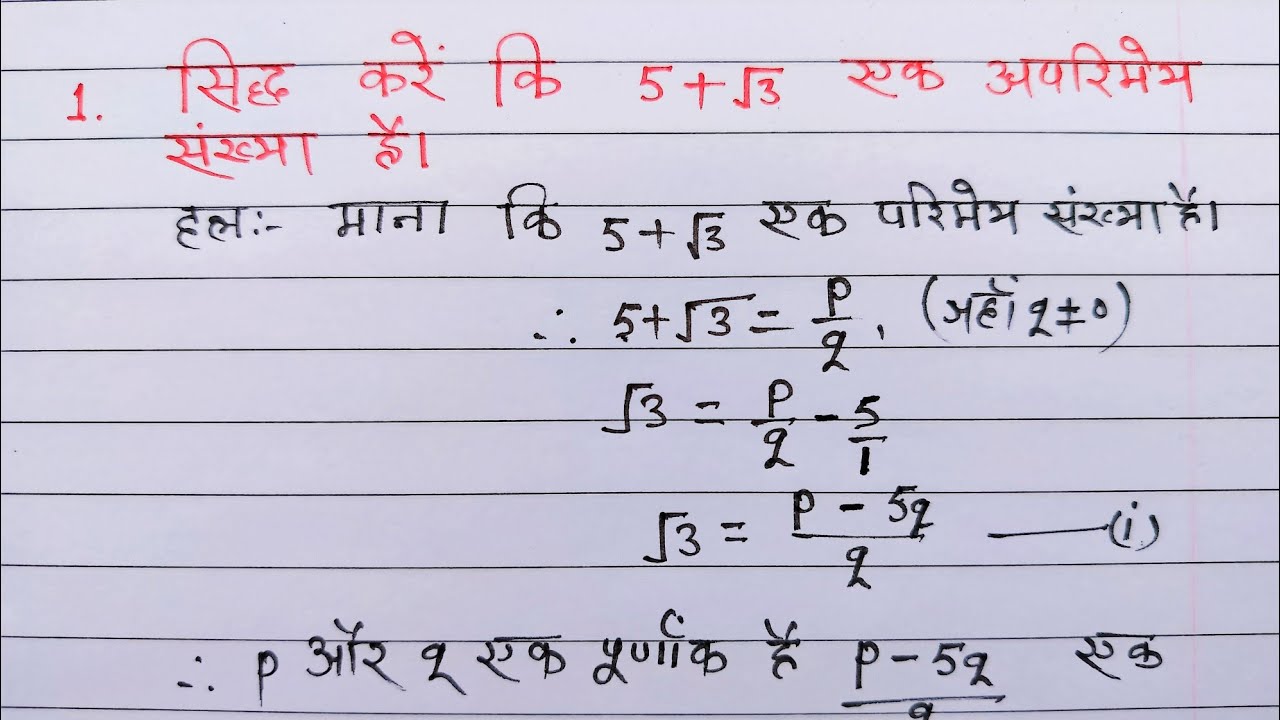 1. सिद्ध करें कि 5+√3 एक अपरिमेय
संख्या है।
हलः- माना कि 5+√3 एक परिमेय संख्या है।
∴ 5+√3 = p/q, (जहाँ q ≠ 0)
√3 = p/q - 5/1
√3 = (p - 5q)/q ——(i)
∴ p और q एक पूर्णांक है (p - 5q)/q एक